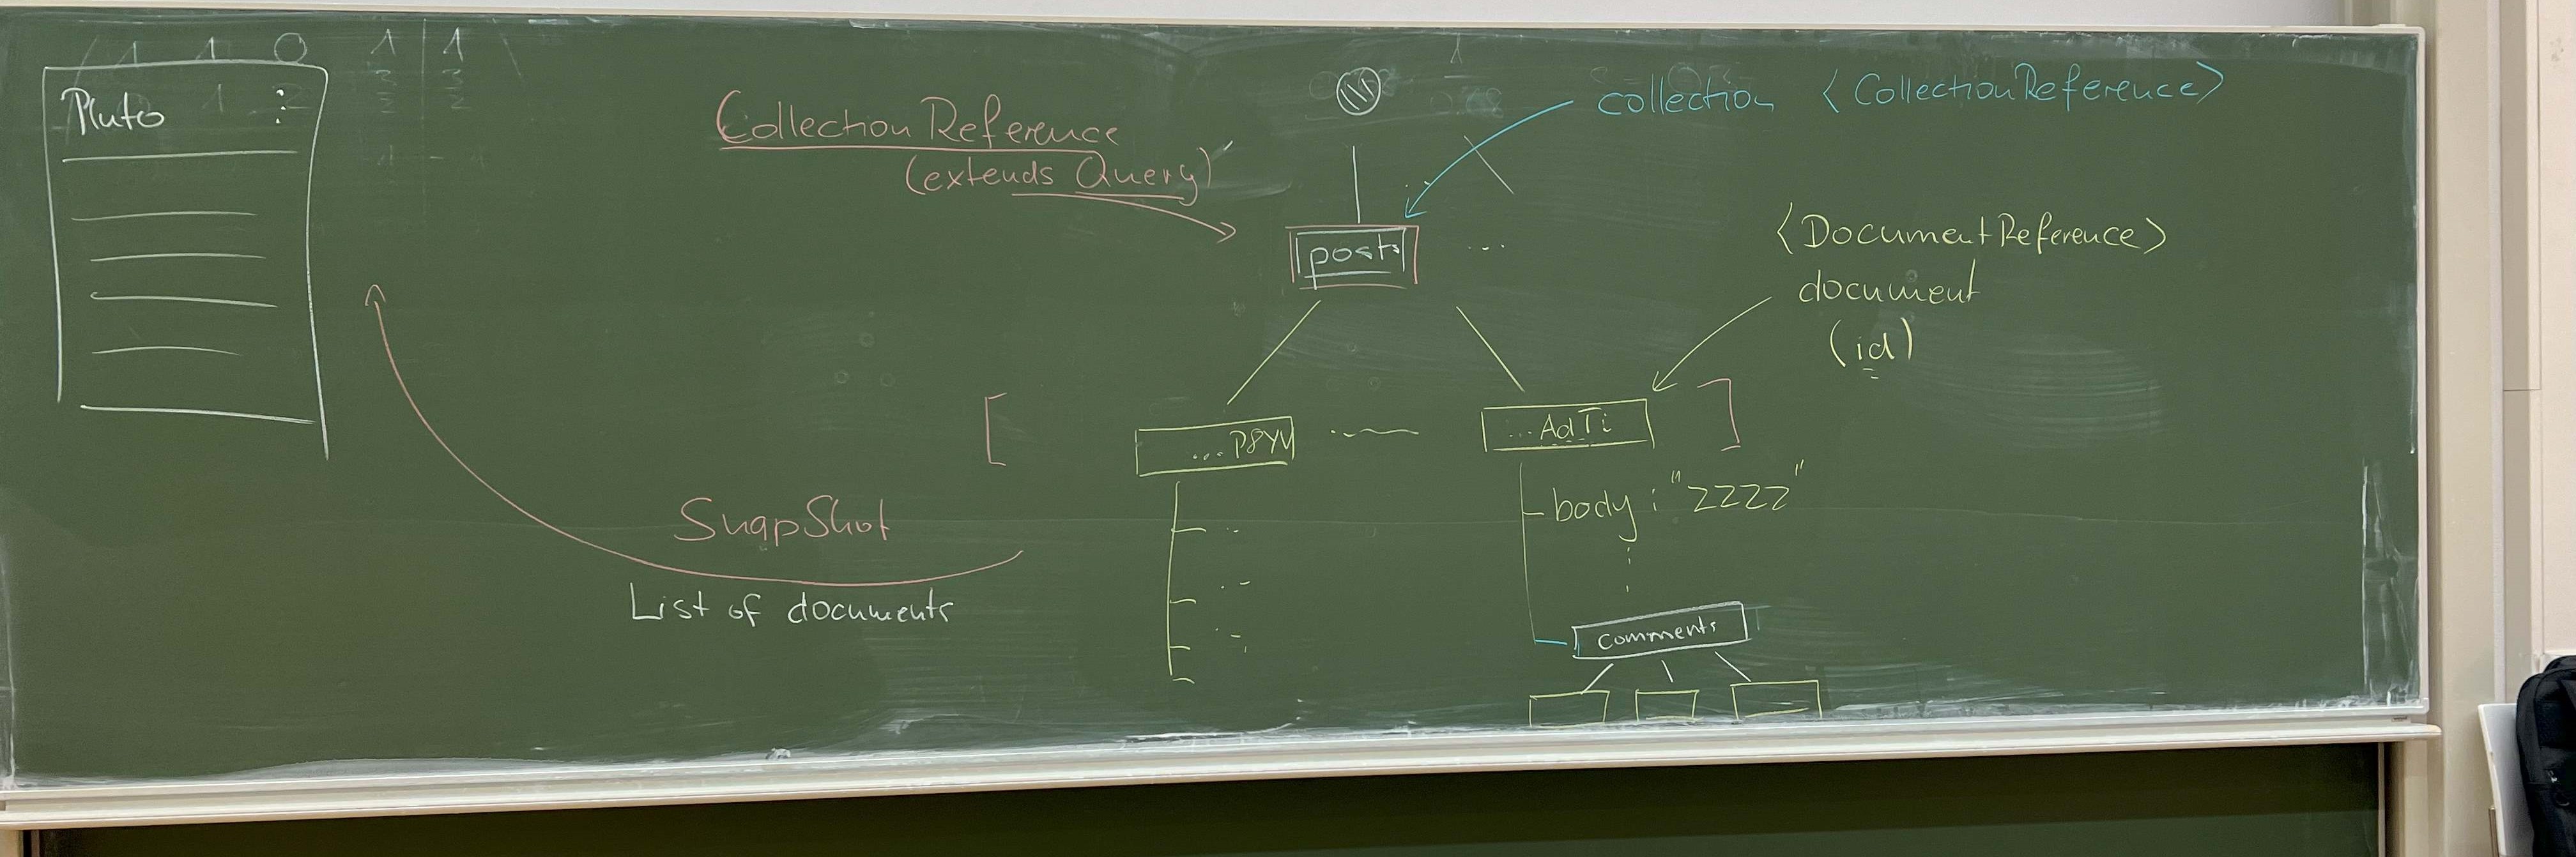 1 1 0 1 1
Pluto
Collection Reference
(extends Query)
collection <CollectionReference>
posts
...
<DocumentReference>
document
(id)
[ ...P8YV ...AdTi ]
body : "ZZZZ"
SnapShot
List of documents
comments